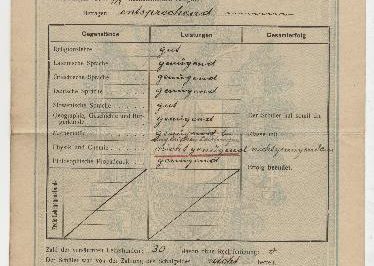 Betragen entsprechend
Gegenstände Leistungen Gesamterfolg
Religionslehre gut
Lateinische Sprache genügend
Griechische Sprache genügend
Deutsche Sprache genügend
Slowenische Sprache gut
Geographie, Geschichte und Bür-
gerkunde genügend Der Schüler hat somit die
Mathematik genügend
Physik und Chemie nicht genügend nichtgenügendem
Philosophische Propädeutik genügend Erfolg beendet.
Zahl der versäumten Lehrstunden: 30 Davon ohne Rechtfertigung:
Der Schüler war von der Zahlung des Schulgeldes nicht befreit